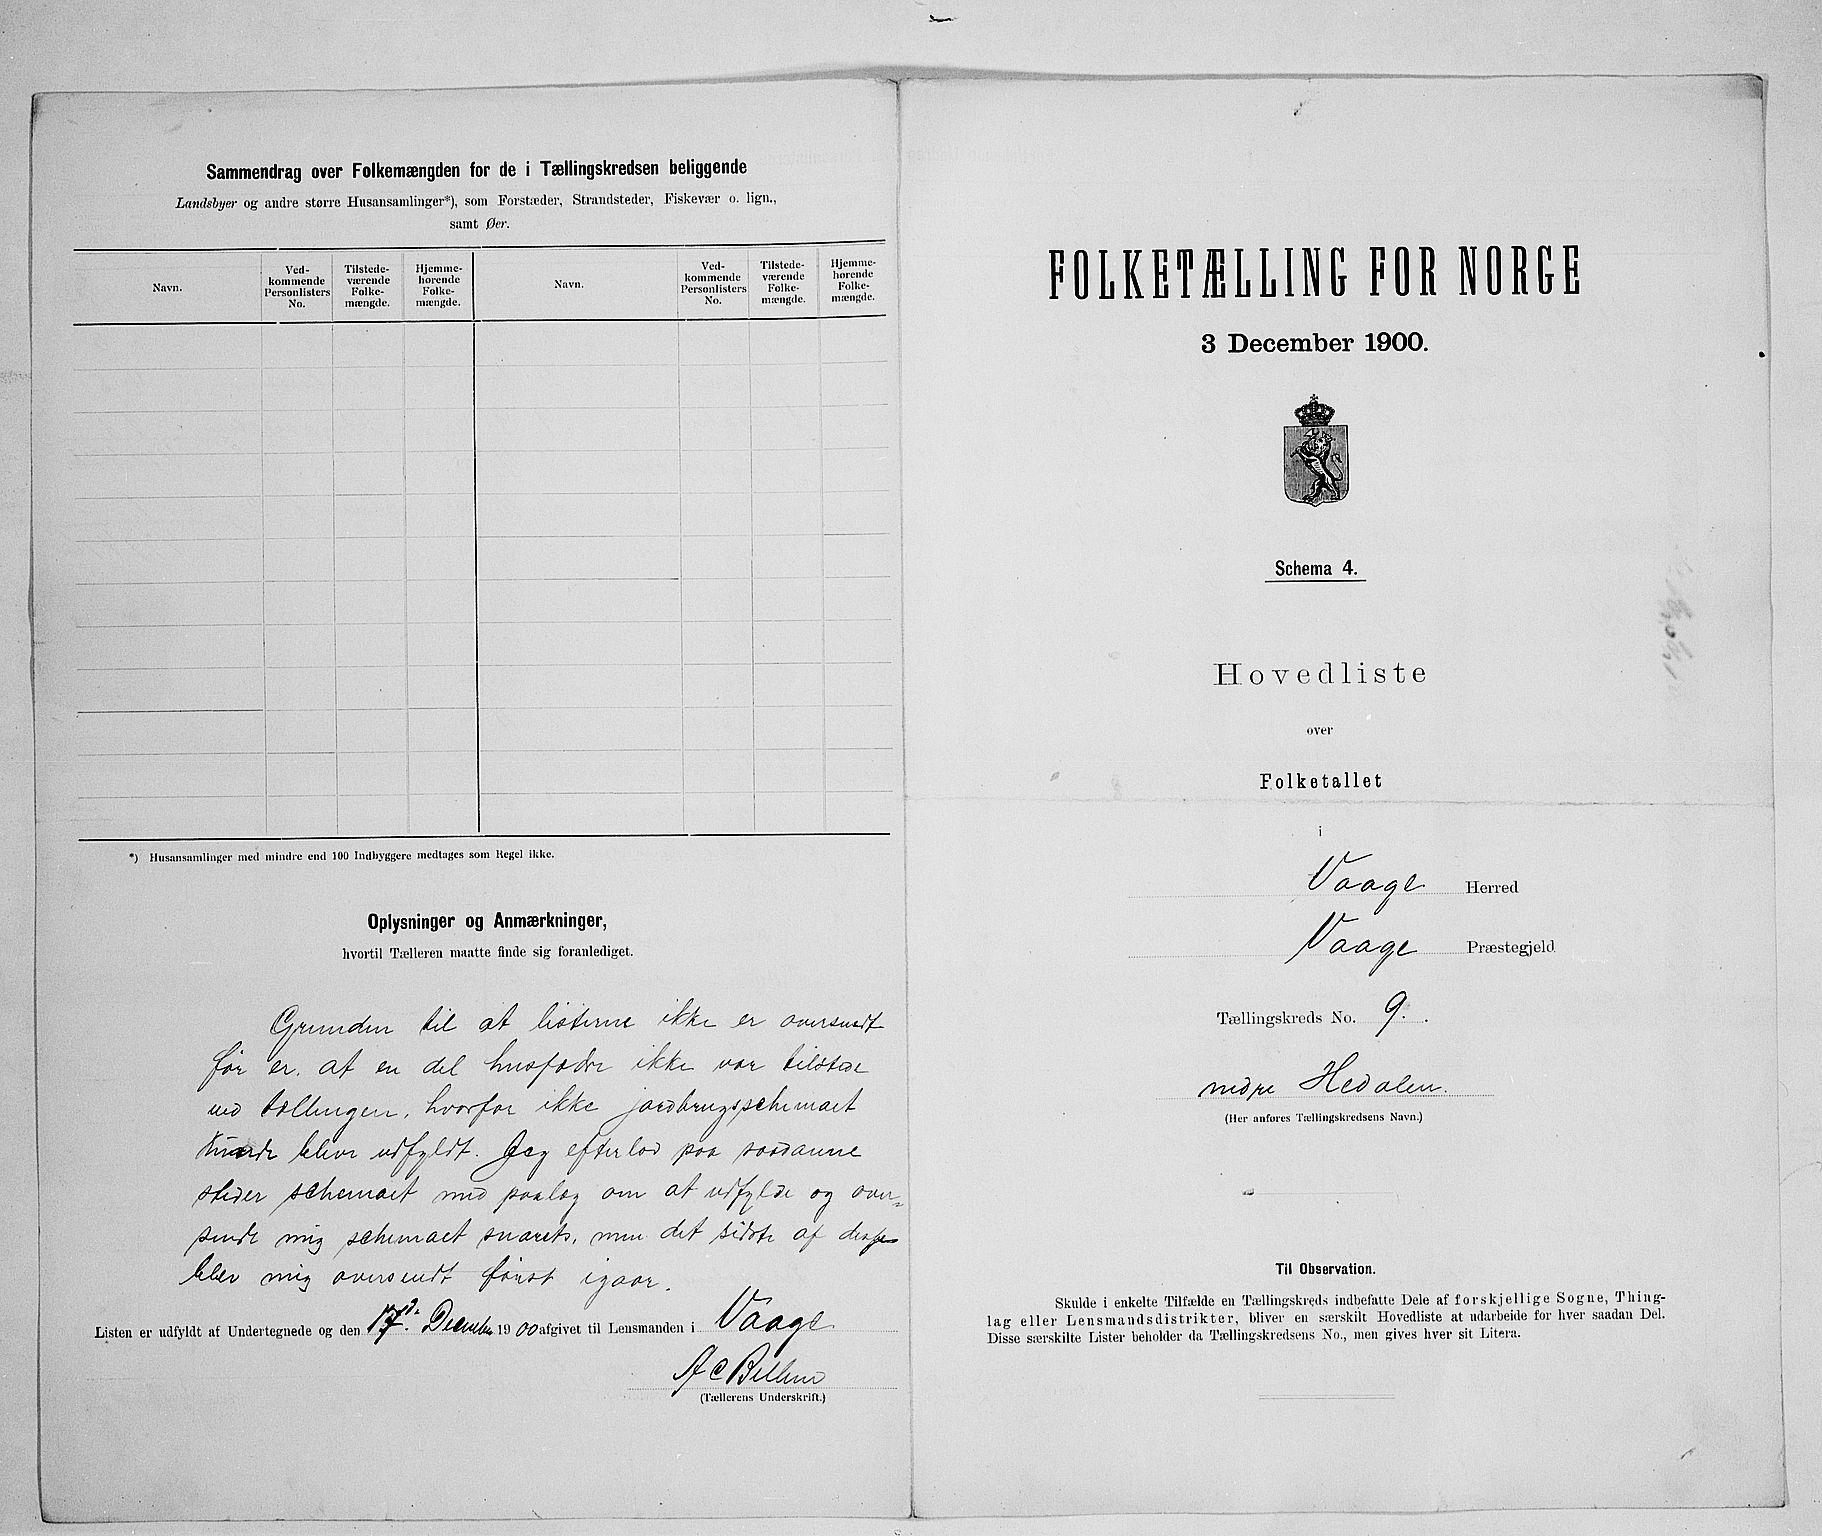 Sammendrag over Folkemængden for de i Tællingskredsen beliggende
Landsbyer og andre større Husansamlinger*), som Forstæder, Strandsteder, Fiskevær o. lign.,
samt Øer.
Navn.
Ved-
kommende
Personlisters
No.
Tilstede-
værende
Folke-
mængde.
Hjemme-
hørende
Folke-
mængde.
Navn.
Ved-
kommende
Personlisters
No.
Tilstede-
værende
Folke-
mængde.
Hjemme-
hørende
Folke-
mængde.
*) Husansamlinger med mindre end 100 Indbyggere medtages som Regel ikke.
Oplysninger og Anmærkninger,
hvortil Tælleren maatte finde sig foranlediget.
Grunden til at listerne ikke er oversendt
før er, at en del husfædre ikke var tilstede
ved tællingen, hvorfor ikke jordbrugsschemaet
kunde blive udfyldt. Jeg efterlod paa saadanne
steder schemaet med paalæg om at udfylde og over-
sende mig schemaet snarets, men det sidste af disse
blev mig oversendt først igaar.
Listen er udfyldt af Undertegnede og den 17d. December 1900 afgivet til Lensmanden i Vaage
(Tællerens Underskrift.)
FOLKETÆLLING FOR NORGE
3 December 1900.
Schema 4.
Hovedliste
over
Folketallet
i
Vaage Herred
Vaage Præstegjeld
Tællingskreds No. 9.
nedre Hedalen.
(Her anføres Tællingskredsens Navn.)
Til Observation.
Skulde i enkelte Tilfælde en Tællingskreds indbefatte Dele af forskjellige Sogne, Thing-
lag eller Lensmandsdistrikter, bliver en særskilt Hovedliste at udarbeide for hver saadan Del.
Disse særskilte Lister beholder da Tællingskredsens No., men gives hver sit Litera.